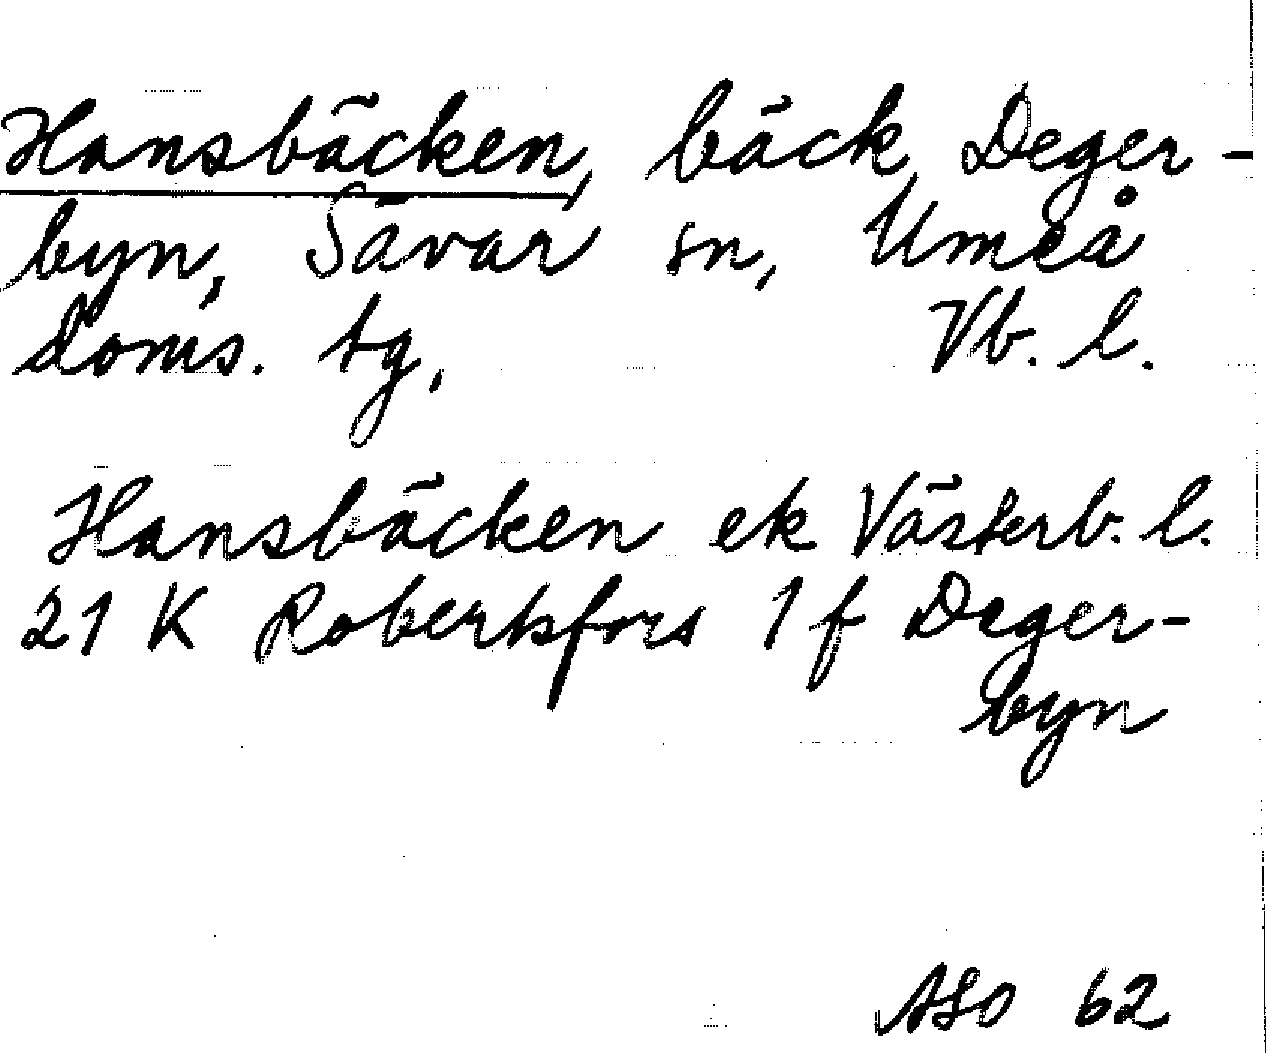 Hansbäcken, bäck, Deger-
byn, Sävar sn, Umeå
doms. tg, Vb. l.
Hansbäcken ek Västerb. l.
21 K Robertsfors 1 f Deger-
byn
ASO 62